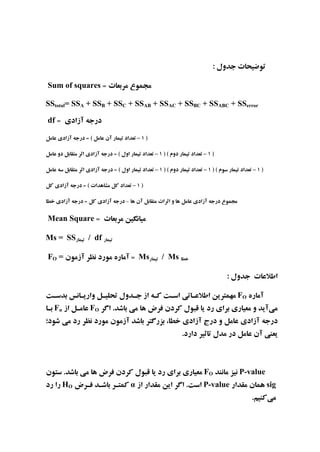 توضیحات جدول :
مجموع مربعات = Sum of squares
SStotal= SSA + SSB + SSC + SSAB + SSAC + SSBC + SSABC + SSerror
درجه آزادی = df
( ۱ – تعداد تیمار آن عامل ) = درجه آزادی عامل
( ۱ – تعداد تیمار دوم ) ( ۱ – تعداد تیمار اول ) = درجه آزادی اثر متقابل دو عامل
( ۱ – تعداد تیمار سوم ) ( ۱ – تعداد تیمار دوم ) ( ۱ – تعداد تیمار اول ) = درجه آزادی اثر متقابل سه عامل
( ۱ – تعداد کل مشاهدات ) = درجه آزادی کل
مجموع درجه آزادی عامل ها و اثرات متقابل آن ها – درجه آزادی کل = درجه آزادی خطا
میانگین مربعات = Mean Square
Ms = SSتیمار / df تیمار
FO = آماره مورد نظر آزمون = Msتیمار / Ms خطا
اطلاعات جدول :
آماره FO مهمترین اطلاعاتی است که از جدول تحلیل واریانس بدست
می‌آید و معیاری برای رد یا قبول کردن فرض ها می باشد. اگر FO عامل از Fα با
درجه آزادی عامل و درج آزادی خطا، بزرگتر باشد آزمون مورد نظر رد می شود؛
یعنی آن عامل در مدل تاثیر دارد.
P-value نیز مانند FO معیاری برای رد یا قبول کردن فرض ها می باشد. ستون
sig همان مقدار P-value است. اگر این مقدار از α کمتر باشد فرض HO را رد
می‌کنیم.